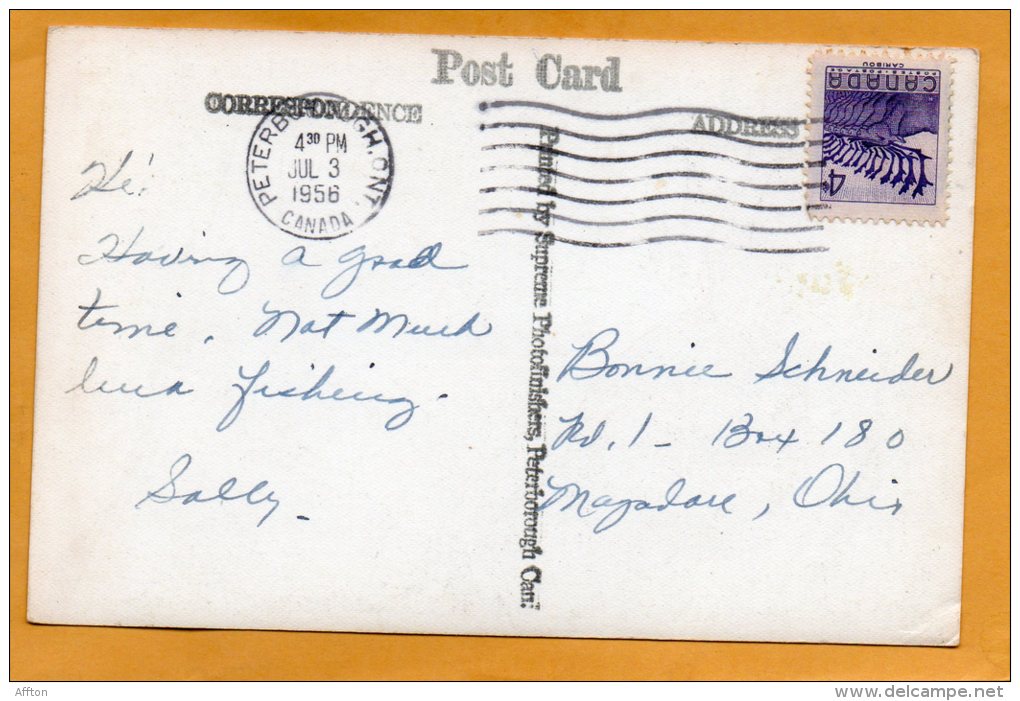 Post Card
CORRESPONDENCE
ADDRESS
PETERBOROUGH, ONT.
4 30 PM
JUL 3
1956
CANADA
CANADA
POSTES-POSTAGE
CARIBOU
4¢
Printed by Supreme Photofinishers, Peterborough Can.
Hi!
Having a good
time. Not Much
luck fishing.
Sally
Bonnie Schneider
Rd. 1 - Box 180
Mogadore, Ohio
Affton
www.delcampe.net